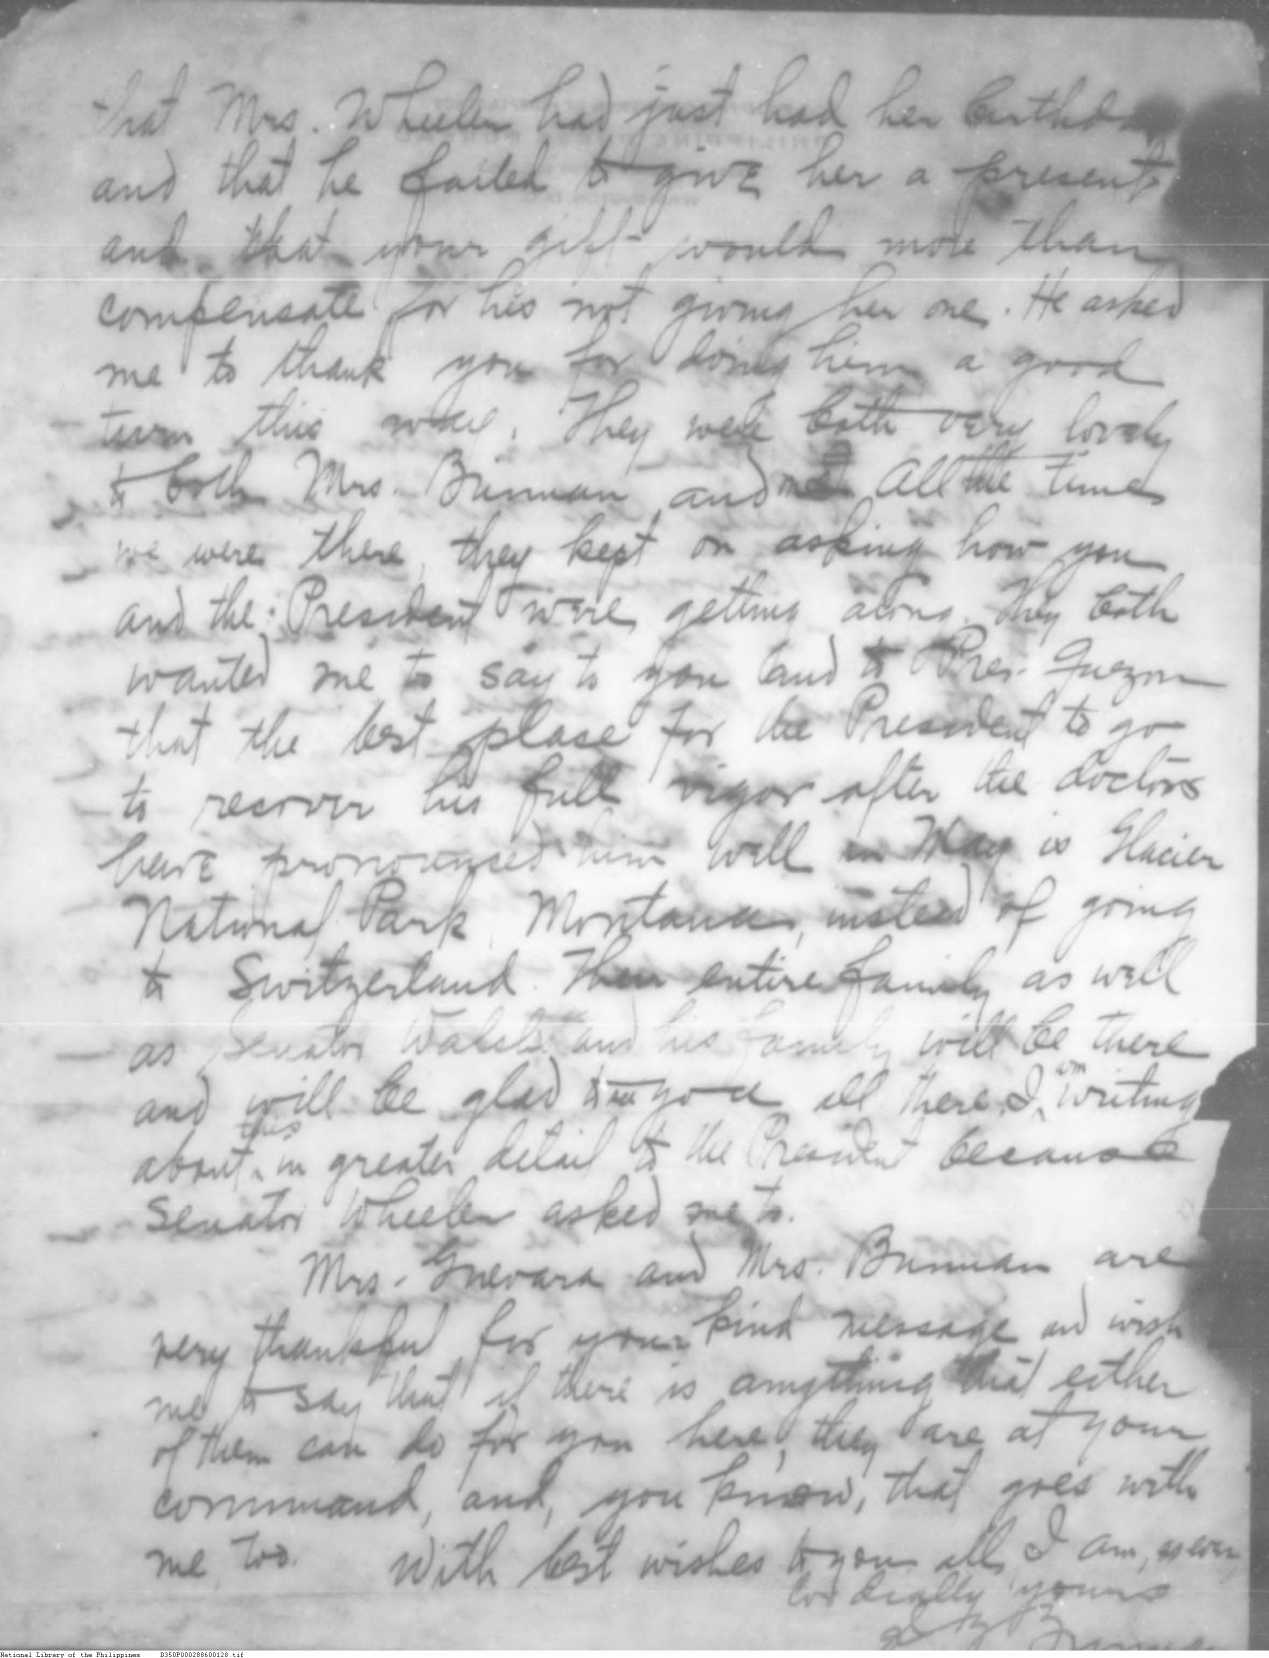 that Mrs. Wheeler had just had her birthday
and that he failed to give her a present
and that your gift would more than
compensate for his not giving her one. He asked
me to thank you for doing him a good
turn this way. They were both very lovely
to both Mrs. Bunuan and me. All the time
we were there, they kept on asking how you
and the President were getting along. They both
wanted me to say to you and to Pres. Quezon
that the best place for the President to go
to recover his full vigor after the doctors
have pronounced him well in May is Glacier
National Park, Montana, instead of going
to Switzerland. Their entire family as well
as Senator Walsh and his family will be there
and will be glad to see you all there. I am writing
about this in greater detail to the President because
Senator Wheeler asked me to.
Mrs. Guevara and Mrs. Bunuan are
very thankful for your kind message and wish
me to say that if there is anything that either
of them can do for you here, they are at your
command, and, you know, that goes with
me too. With best wishes to you all, I am, as ever,
Cordially yours
National Library of the Philippines D350P000288600128.tif